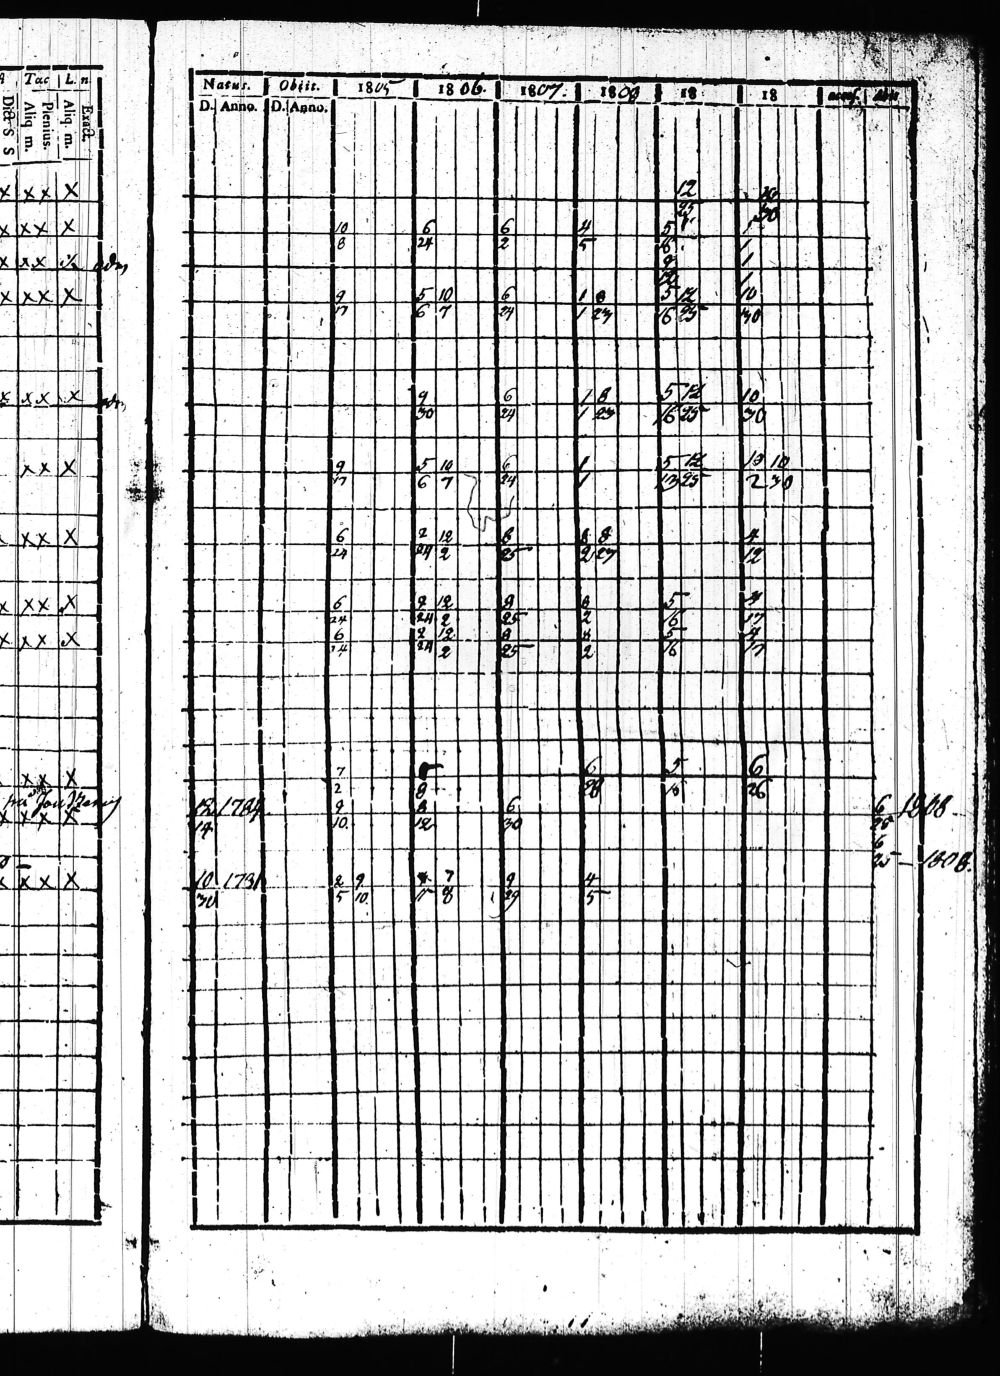 Tac | L. n.
Dict S S | Aliq m. | Plenius. | Aliq. m. | Exact.
Natus. | Obiit. | 1805 | 1806. | 1807. | 1808 | 18 | 18 | accef. | Abit
D. Anno. | D. Anno.
x x x X | 12
25 | 30
x x x X | 10 | 6 | 6 | 4 | 5 | 1
8 | 24 | 2 | 5 | 6 | 1
x x x | 9 | 1
12 | 1
x x x X | 9 | 5 10 | 6 | 1 8 | 5 12 | 10
17 | 6 7 | 24 | 1 23 | 16 25 | 30
x x x x | 9 | 6 | 1 8 | 5 12 | 10
30 | 24 | 1 23 | 16 25 | 30
x x X | 9 | 5 10 | 6 | 1 | 5 12 | 10
17 | 6 7 | 24 | 1 | 13 25 | 2 30
x x X | 6 | 2 12 | 8 | 8 8 | 4
24 | 24 2 | 25 | 2 27 | 12
x x x X | 6 | 2 12 | 8 | 8 | 5 | 4
24 | 24 2 | 25 | 2 | 16 | 17
x x x X | 6 | 2 12 | 8 | 8 | 5 | 4
24 | 24 2 | 25 | 2 | 16 | 17
x x X | 7 | 6 | 5 | 6
2 | 8 | 28 | 16 | 26
x x x X | 12 1784 | 9 | 8 | 6 | 6 1808.
14 | 10 | 12 | 30 | 25
6
25 — 1808.
x x x X | 10 1731 | 2 9 | 7 | 9 | 4
30 | 5 10 | 8 | 29 | 5